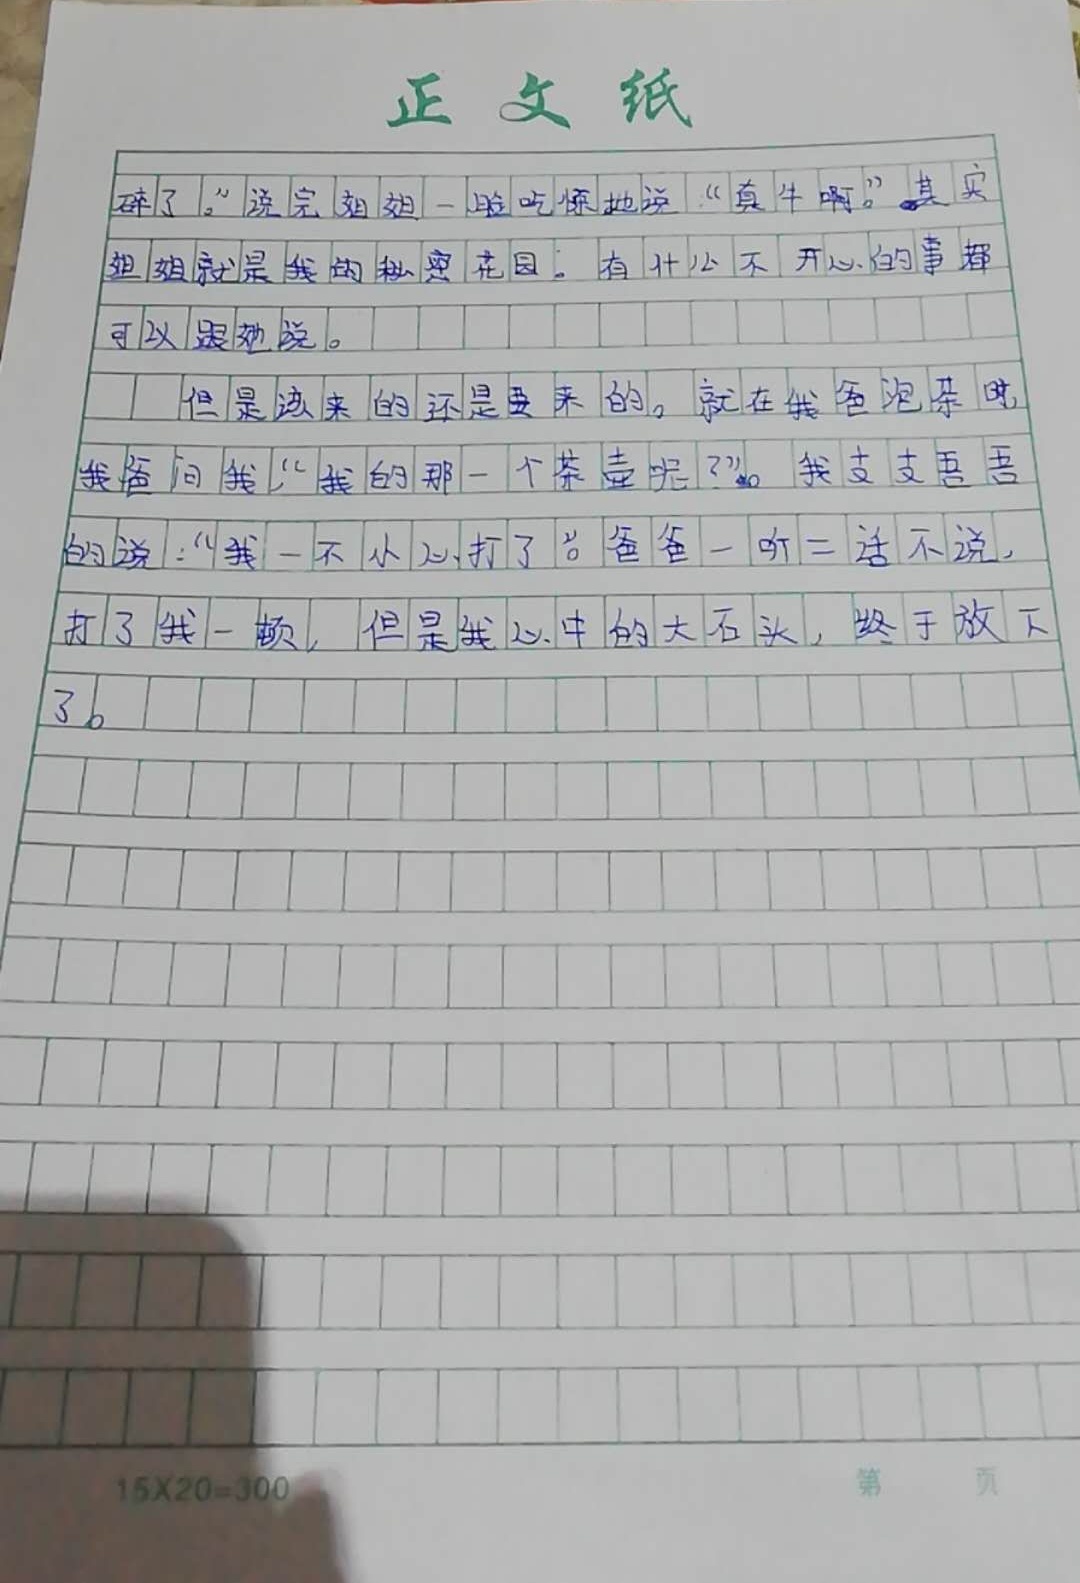 正文纸
碎了。”说完姐姐一脸吃惊地说:“真牛啊。”其实
姐姐就是我的秘密花园。有什么不开心的事都
可以跟她说。
但是该来的还是要来的。就在我爸泡茶时
我爸问我:“我的那一个茶壶呢?”。我支支吾吾
的说:“我一不小心打了”。爸爸一听二话不说,
打了我一顿,但是我心中的大石头,终于放下
了。
15X20=300
第 页